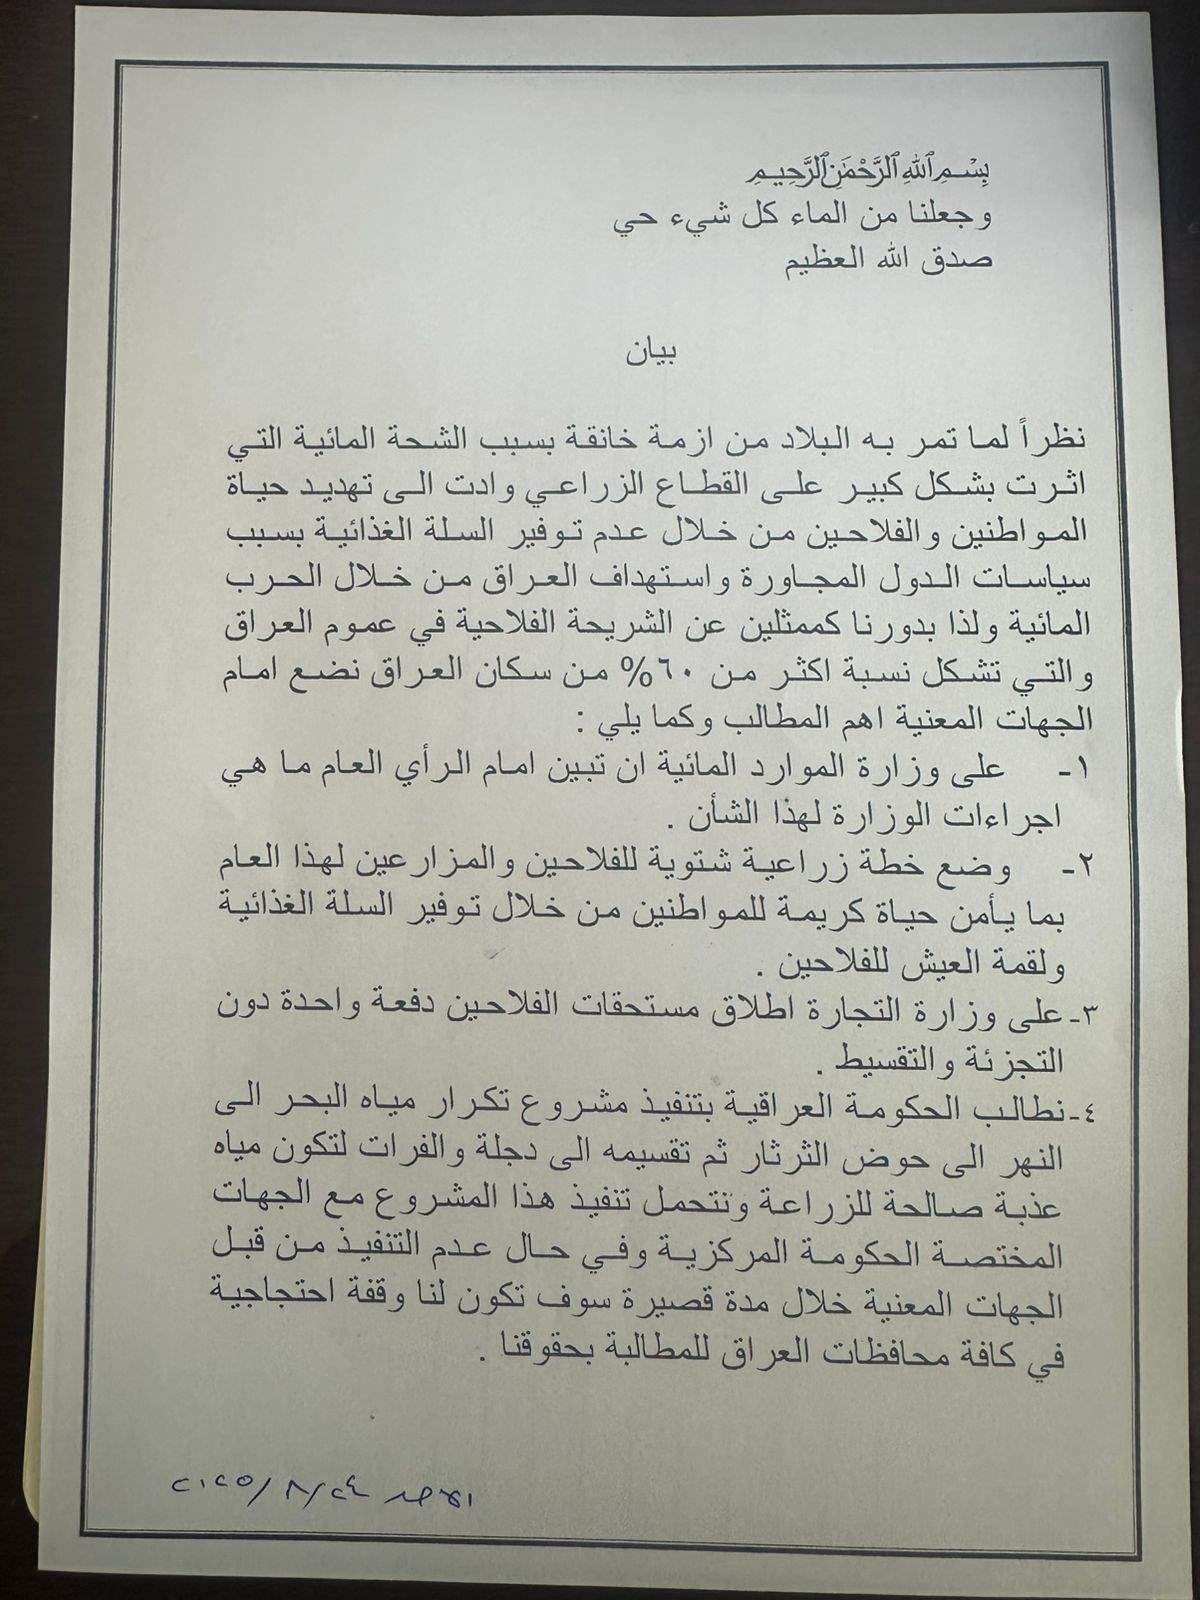 بِسْمِ ٱللَّهِ ٱلرَّحْمَٰنِ ٱلرَّحِيمِ
وجعلنا من الماء كل شيء حي
صدق الله العظيم
بيان
نظراً لما تمر به البلاد من ازمة خانقة بسبب الشحة المائية التي
اثرت بشكل كبير على القطاع الزراعي وادت الى تهديد حياة
المواطنين والفلاحين من خلال عدم توفير السلة الغذائية بسبب
سياسات الدول المجاورة واستهداف العراق من خلال الحرب
المائية ولذا بدورنا كممثلين عن الشريحة الفلاحية في عموم العراق
والتي تشكل نسبة اكثر من ٦٠% من سكان العراق نضع امام
الجهات المعنية اهم المطالب وكما يلي :
١- على وزارة الموارد المائية ان تبين امام الرأي العام ما هي
اجراءات الوزارة لهذا الشأن .
٢- وضع خطة زراعية شتوية للفلاحين والمزارعين لهذا العام
بما يأمن حياة كريمة للمواطنين من خلال توفير السلة الغذائية
ولقمة العيش للفلاحين .
٣- على وزارة التجارة اطلاق مستحقات الفلاحين دفعة واحدة دون
التجزئة والتقسيط .
٤- نطالب الحكومة العراقية بتنفيذ مشروع تكرار مياه البحر الى
النهر الى حوض الثرثار ثم تقسيمه الى دجلة والفرات لتكون مياه
عذبة صالحة للزراعة ونتحمل تنفيذ هذا المشروع مع الجهات
المختصة الحكومة المركزية وفي حال عدم التنفيذ من قبل
الجهات المعنية خلال مدة قصيرة سوف تكون لنا وقفة احتجاجية
في كافة محافظات العراق للمطالبة بحقوقنا .
الاحد ٢٤/٨/٢٠٢٥